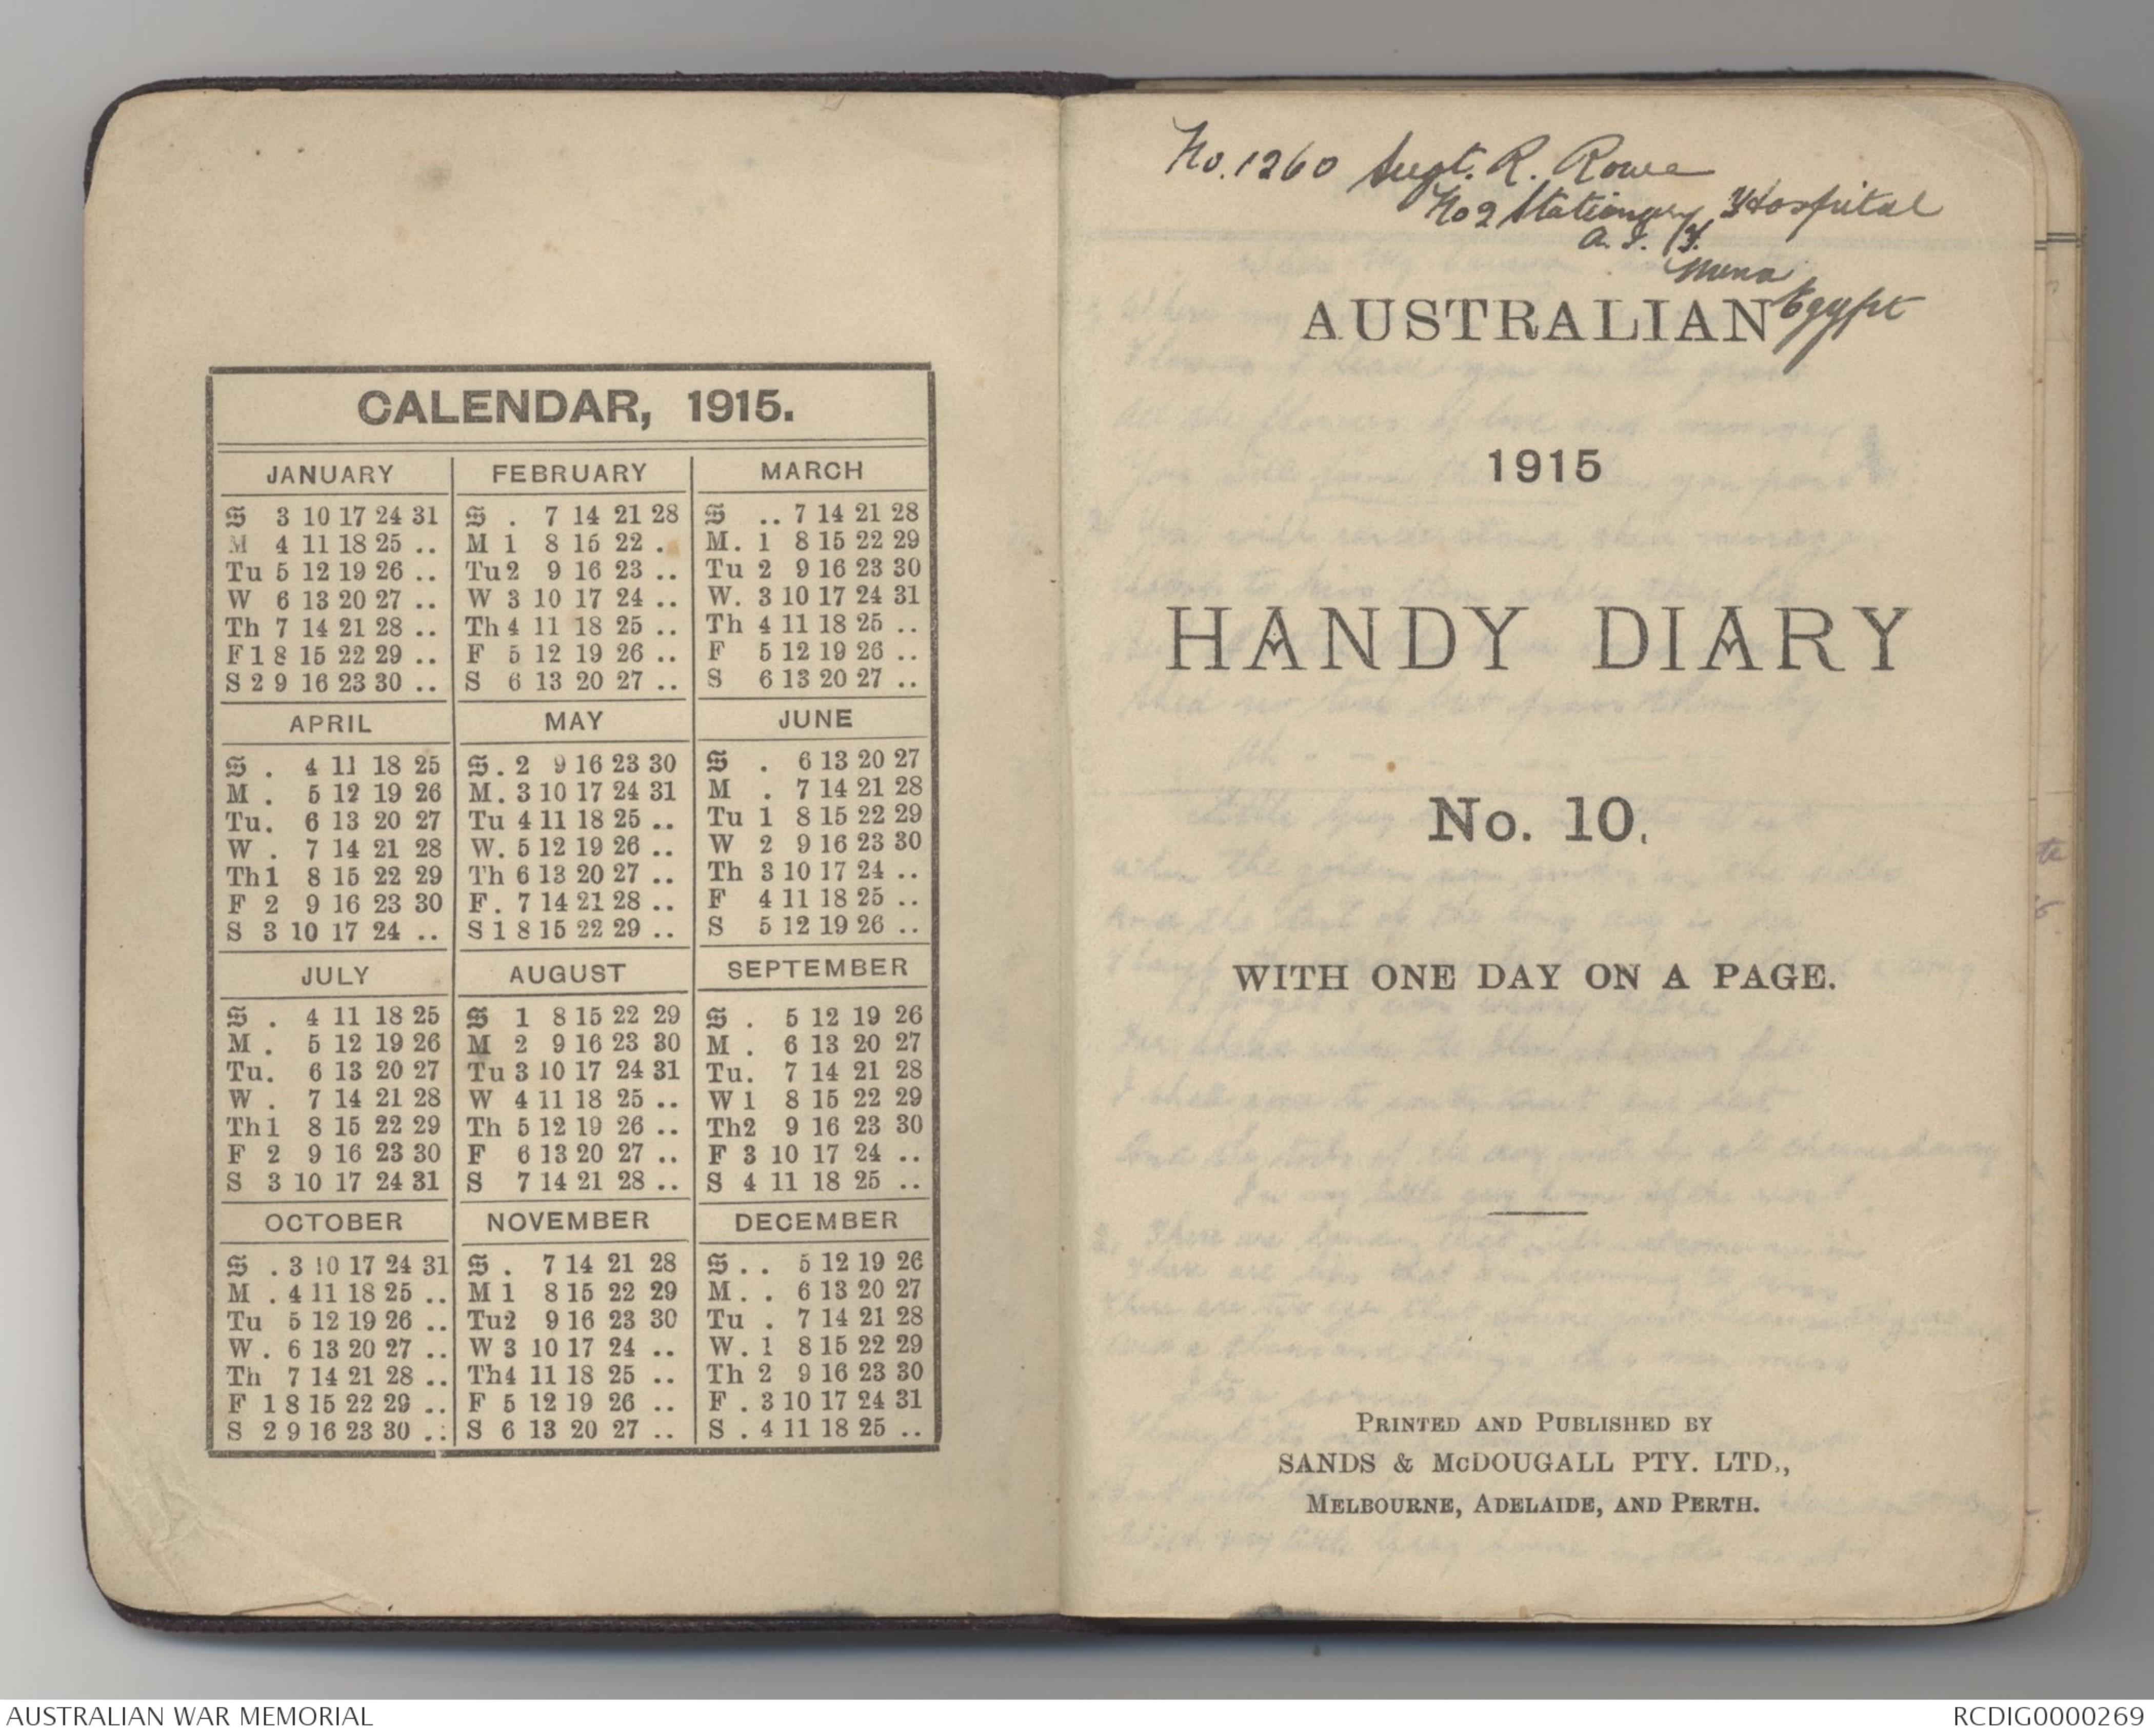 CALENDAR, 1915.
JANUARY FEBRUARY MARCH
S 3 10 17 24 31 S . 7 14 21 28 S .. 7 14 21 28
M 4 11 18 25 .. M 1 8 15 22 . M. 1 8 15 22 29
Tu 5 12 19 26 .. Tu 2 9 16 23 .. Tu 2 9 16 23 30
W 6 13 20 27 .. W 3 10 17 24 .. W. 3 10 17 24 31
Th 7 14 21 28 .. Th 4 11 18 25 .. Th 4 11 18 25 ..
F 1 8 15 22 29 .. F 5 12 19 26 .. F 5 12 19 26 ..
S 2 9 16 23 30 .. S 6 13 20 27 .. S 6 13 20 27 ..
APRIL MAY JUNE
S . 4 11 18 25 S . 2 9 16 23 30 S . 6 13 20 27
M . 5 12 19 26 M . 3 10 17 24 31 M . 7 14 21 28
Tu. 6 13 20 27 Tu 4 11 18 25 .. Tu 1 8 15 22 29
W . 7 14 21 28 W. 5 12 19 26 .. W 2 9 16 23 30
Th 1 8 15 22 29 Th 6 13 20 27 .. Th 3 10 17 24 ..
F 2 9 16 23 30 F. 7 14 21 28 .. F 4 11 18 25 ..
S 3 10 17 24 .. S 1 8 15 22 29 .. S 5 12 19 26 ..
JULY AUGUST SEPTEMBER
S . 4 11 18 25 S 1 8 15 22 29 S . 5 12 19 26
M . 5 12 19 26 M 2 9 16 23 30 M . 6 13 20 27
Tu. 6 13 20 27 Tu 3 10 17 24 31 Tu. 7 14 21 28
W . 7 14 21 28 W 4 11 18 25 .. W 1 8 15 22 29
Th 1 8 15 22 29 Th 5 12 19 26 .. Th 2 9 16 23 30
F 2 9 16 23 30 F 6 13 20 27 .. F 3 10 17 24 ..
S 3 10 17 24 31 S 7 14 21 28 .. S 4 11 18 25 ..
OCTOBER NOVEMBER DECEMBER
S . 3 10 17 24 31 S . 7 14 21 28 S .. 5 12 19 26
M . 4 11 18 25 .. M 1 8 15 22 29 M .. 6 13 20 27
Tu 5 12 19 26 .. Tu 2 9 16 23 30 Tu . 7 14 21 28
W . 6 13 20 27 .. W 3 10 17 24 .. W. 1 8 15 22 29
Th 7 14 21 28 .. Th 4 11 18 25 .. Th 2 9 16 23 30
F 1 8 15 22 29 .. F 5 12 19 26 .. F . 3 10 17 24 31
S 2 9 16 23 30 .. S 6 13 20 27 .. S . 4 11 18 25 ..
No. 1260 Sergt. R. Rowe
No 2 Stationary Hospital
A. I. F.
Mena
Egypt
AUSTRALIAN
1915
HANDY DIARY
No. 10.
WITH ONE DAY ON A PAGE.
PRINTED AND PUBLISHED BY
SANDS & McDOUGALL PTY. LTD.,
MELBOURNE, ADELAIDE, AND PERTH.
AUSTRALIAN WAR MEMORIAL
RCDIG0000269